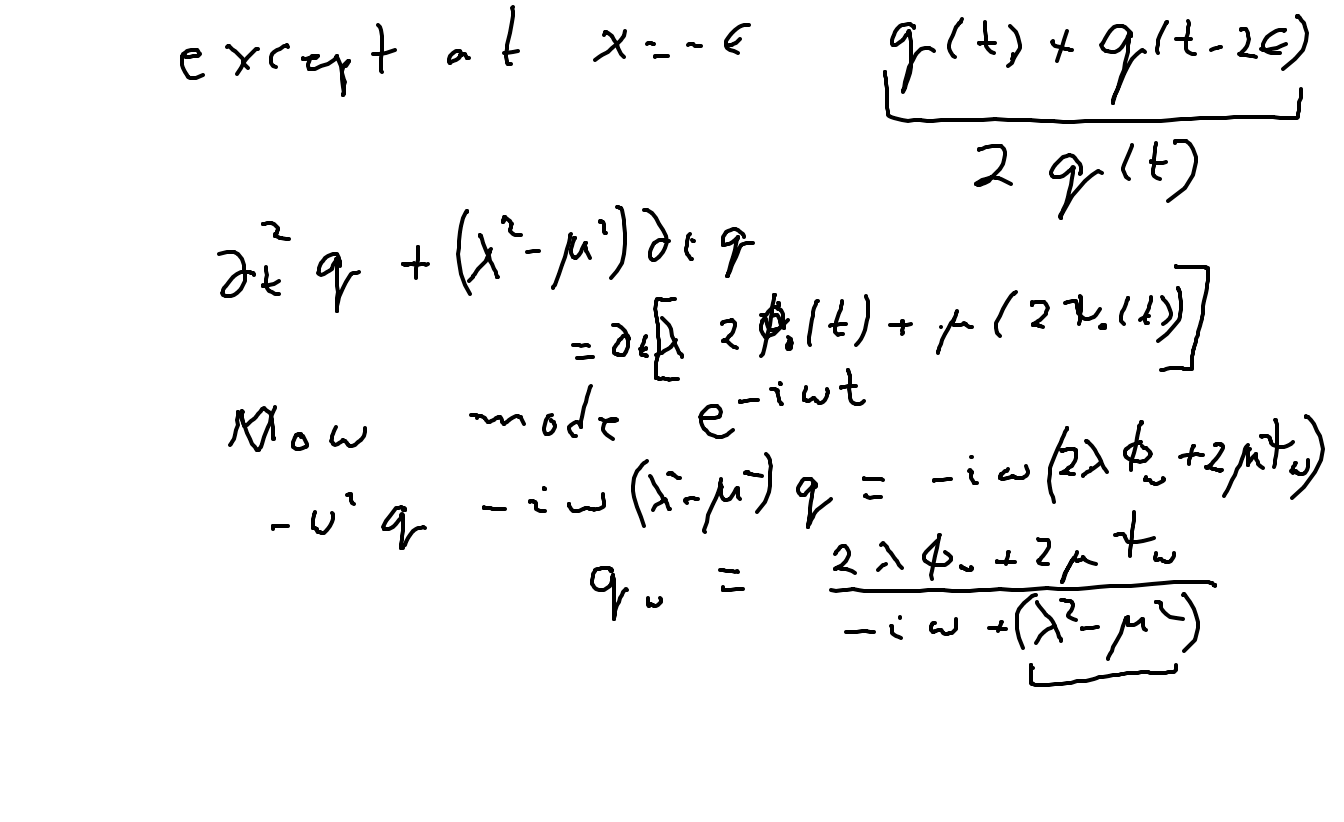 except at x = -ϵ   q(t) + q(t - 2ϵ)
2 q(t)
∂ₜ² q + (λ² - μ²) ∂ₜ q
= ∂ₜ[λ 2 ϕ₀(t) + μ (2 ψ₀(t))]
Now mode e^{-iωt}
-ω² q - iω (λ² - μ²) q = -iω (2λ ϕ_ω + 2μ ψ_ω)
q_ω = \frac{2 λ ϕ_ω + 2 μ ψ_ω}{-iω + (λ² - μ²)}